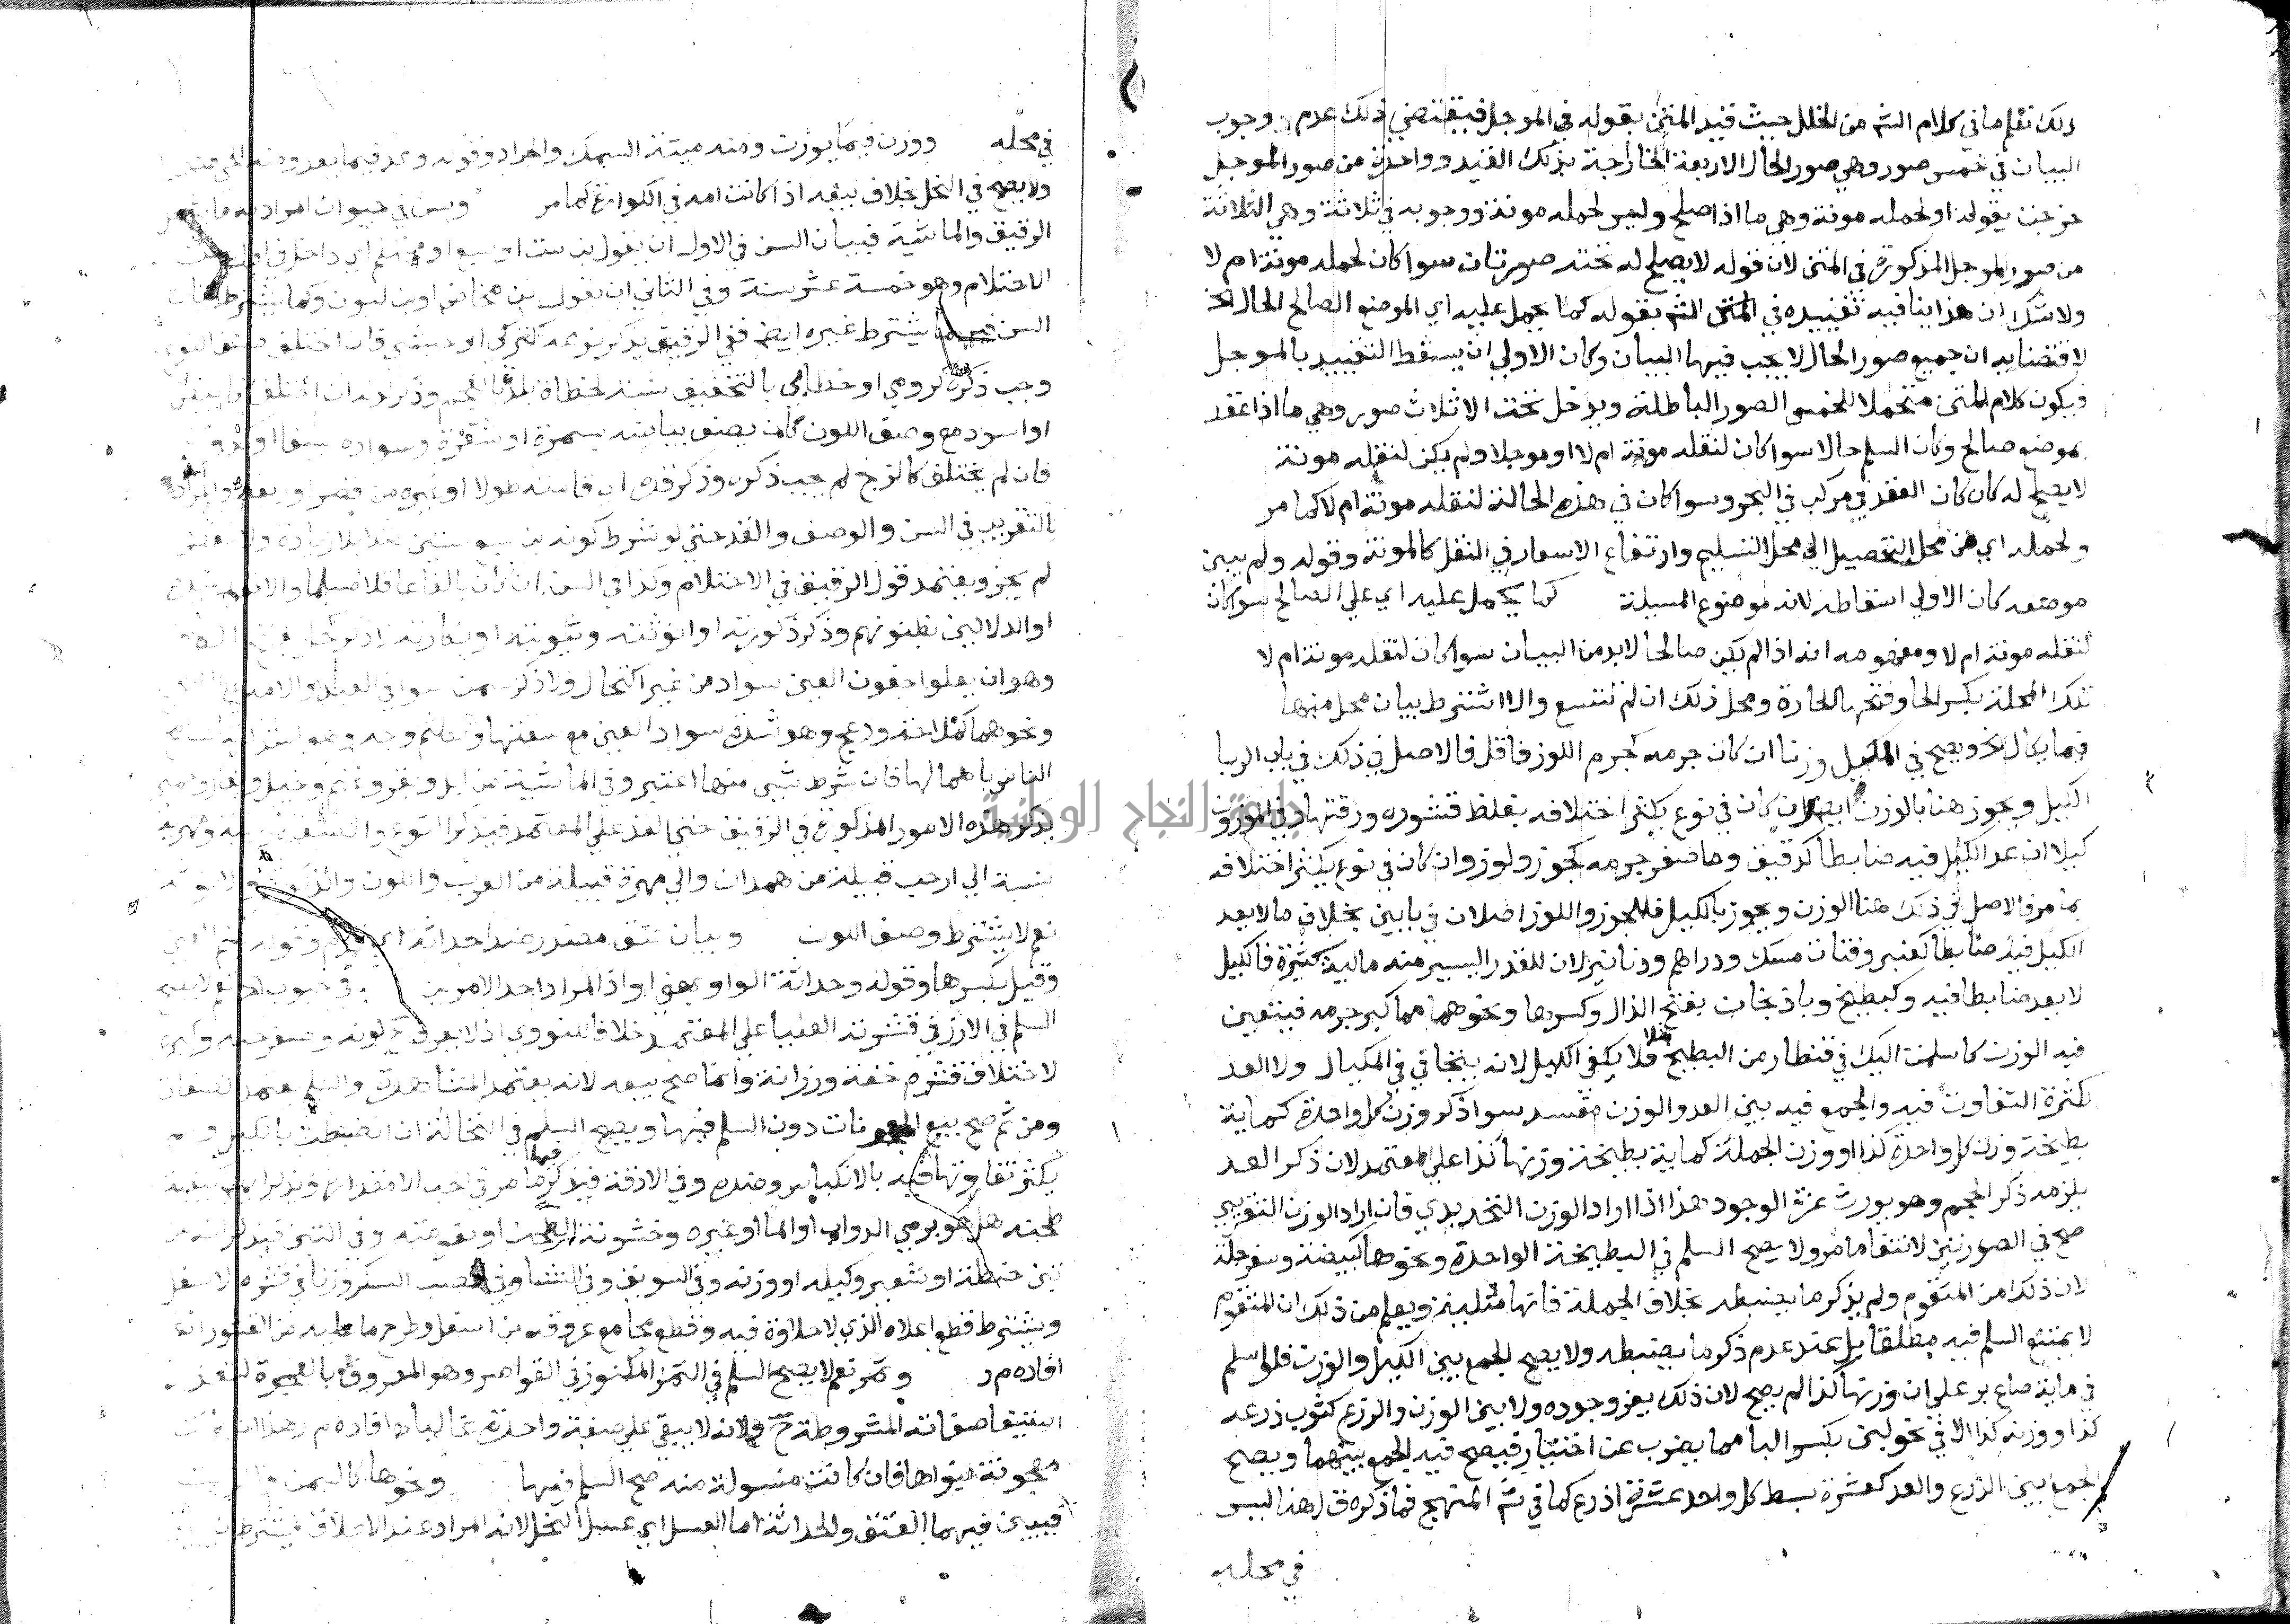 ذلك تعلم ما في كلام الشم من الخلل حيث قيد المتن بقوله في الموجل فيقتضي ذلك عدم وجوب
البيان في خمس صور وهي صور الحال الاربعة الخارجة بذلك القيد وواحدة من صور الموجل
خرجت بقوله او لحمله مونة وهي ما اذا صلح وليس لحمله مونة ووجوبه في ثلاثة وهي الثلاثة
من صور الموجل المذكورة في المتن لان قوله لا يصلح له تحته صورتان سوا كان لحمله مونة ام لا
ولا شك ان هذا ينافيه تقييده في المتن الشم بقوله كما يحمل عليه اي الموضع الصالح الحال الخ
لاقتضايه ان جميع صور الحال لا يجب فيها البيان وكان الاولي ان يسقط التقييد بالموجل
فيكون كلام المتن متحملا للخمس الصور الباطلة ويدخل تحت الا ثلاث صور وهي ما اذا عقد
بموضع صالح وكان السلم حالا سوا كان لنقله مونة ام لا او موجلا ولم يكن لنقله مونة
لا يصلح له كان كان العقد في مركب في البحر وسوا كان في هذه الحالة لنقله مونة ام لا كما مر
ولحمله اي من محل التحصيل الي محل التسليم وارتفاع الاسعار في النقل كالمونة وقوله ولم يبين
موضعه كان الاولي اسقاطه لانه موضوع المسيلة كما يحمل عليه اي علي الصالح سوا كان
لنقله مونة ام لا ومفهومه انه اذا لم يكن صالحا لا بد من البيان سوا كان لنقله مونة ام لا
تلك المحلة بكسر الحا وفتحها الحارة ومحل ذلك ان لم تتسع والا اشترط بيان محل منها
فيما يكال الخ ويصح في المكيل وزنا ان كان جرمه كجرم اللوز فاقل فالاصل في ذلك في باب الربا
الكيل ويجوز هنا بالوزن ايضا ان كان في نوع يكثر اختلافه بغلظ قشوره ورقتها وفي الموزون
كيلا ان عد الكيل فيه ضابطا كدقيق وما صغر جرمه كجوز ولوز وان كان في نوع يكثر اختلافه
بما مر فالاصل في ذلك هنا الوزن ويجوز بالكيل فللجوز واللوز اصلان في بابين بخلاف ما لا يعد
الكيل فيه ضابطا كعنبر وفتات مسك ودراهم ودنانير لان للقدر اليسير منه مالية كثيرة فالكيل
لا يعد ضابطا فيه وكبطيخ وباذنجان بفتح الذال وكسرها ونحوهما مما كبر جرمه فيتعين
فيه الوزن كاسلمت اليك في قنطار من البطيخ مثلا فلا يكفي الكيل لانه يتجافي في المكيال ولا العد
لكثرة التفاوت فيه والجمع فيه بين العد والوزن مفسد سوا ذكر وزن كل واحدة كماية
بطيخة وزن كل واحدة كذا او وزن الجملة كماية بطيخة وزنها كذا علي المعتمد لان ذكر العد
يلزمه ذكر الحجم وهو يورث عزة الوجود هذا اذا اراد الوزن التحديدي فان اراد الوزن التقريبي
صح في الصورتين لانتفا ما مر ولا يصح السلم في البطيخة الواحدة ونحوها كبيضة وسفرجلة
لان ذلك من المتقوم ولم يذكر ما يضبطه بخلاف الجملة فانها مثلية ويعلم من ذلك ان المتقوم
لا يمتنع السلم فيه مطلقا بل عند عدم ذكر ما يضبطه ولا يصح الجمع بين الكيل والوزن فلو اسلم
في ماية صاع بر علي ان وزنها كذا لم يصح لان ذلك يعز وجوده ولا بين الوزن والذرع كثوب ذرعه
كذا ووزنه كذا الا في نحو لبن بكسر البا مما يضرب عن اختيار فيصح فيه الجمع بينهما ويصح
الجمع بين الذرع والعد كعشرة بسط كل واحد عشرة اذرع كما في شم المنهج فما ذكره ق ل هنا ليس
في محله
في محله ووزن فيما يوزن ومنه ميتة السمك والجراد وقوله وعد فيما يعد ومنه الحي
ولا يصح في النحل بخلاف بيعه اذا كانت امه في الكوارة كما مر وسن في حيوان المراد به ما يشمل
الرقيق والماشية فبيان السن في الاول ان يقول بن ست او سبع او محتلم اي داخل في اول
الاحتلام وهو خمسة عشر سنة وفي الثاني ان يقول بن مخاض او بن لبون وكما يشترط بيان
السن يشترط غيره ايضا ففي الرقيق يذكر نوعه كتركي او حبشي فان اختلف صنف النوع
وجب ذكره كرومي او خطابي بالتخفيف نسبة لخطاة بلد بالعجم وذكر لونه ان اختلف كابيض
او اسود مع وصف اللون كان يصف بياضه بسمرة او شقرة وسواده بصفا او
فان لم يختلف كالزنج لم يجب ذكره وذكر قده اي قامته طولا او غيره من قصر او ربعة والمراد
بالتقريب في السن والوصف والقد حتي لو شرط كونه بن سبع سنين مثلا بلا زيادة ولا نقص
لم يجز ويعتمد قول الرقيق في الاحتلام وكذا في السن ان كان بالغا عاقلا مسلما والا
او الدلالين بظنونهم وذكر ذكورته او انوثته وثيوبته او بكارته لا ذكر كحل
وهو ان يعلو جفون العين سواد من غير اكتحال ولا ذكر سمن سوا في العبد والامة
ونحوهما كملاحة ودعج وهو شدة سواد العين مع سعتها وتكلثم وجه وهو استدارته
الناس باهمالها فان شرط شي منها اعتبر وفي الماشية من ابل وبقر وغنم وخيل وبغال وحمير
يذكر هذه الامور المذكورة في الرقيق حتي القد علي المعتمد فيذكر النوع
نسبة الي ارحب قبيلة من همدان والي مهرة قبيلة من العرب واللون والذكورة والانوثة
نعم لا يشترط وصف اللون وبيان عتق مصدر ضد احداثه اي وقوله
وقيل بكسرها وقوله وحداثة الواو بمعني او اذ المراد احد الامرين في حبوب نعم لا يصح
السلم في الارز في قشرته العليا علي المعتمد خلافا للنووي اذ لا يعرف ح لونه وصغر حبه وكبره
لاختلاف قشره خفة ورزانة وانما صح بيعه لانه يعتمد المشاهدة والسلم يعتمد الصفات
ومن ثم صح بيع المعجونات دون السلم فيها ويصح السلم في النخالة ان انضبطت بالكيل ولم
يكثر تفاوتها فيه بالانكباس وضده وفي الادقة فيذكر فيها ما مر في الحب الا مقداره ويذكر
طحنه هل هو برحي الدواب او الما او غيره وخشونة الطحن او نعومته وفي التبن فيذكر انه من
تبن حنطة او شعير وكيله او وزنه وفي السويق وفي النشا وفي قصب السكر وزنا في قشره الاسفل
ويشترط قطع اعلاه الذي لا حلاوة فيه وقطع مجامع عروقه من اسفل وطرح ما عليه من القشور
افاده م ر وتمر نعم لا يصح السلم في التمر المكنوز في القواصر وهو المعروف بالعجوة لتعذر
استيفا صفاته المشروطة ح ولانه لا يبقي علي صفة واحدة غالبا كذا افاده م ر هذا ان كانت
معجونة بنواها فان كانت منسولة منه صح السلم فيها ونحوها كالسمن
فيبين فيهما العتق والحداثة اما العسل اي عسل النحل لانه المراد عند الاطلاق فيشترط